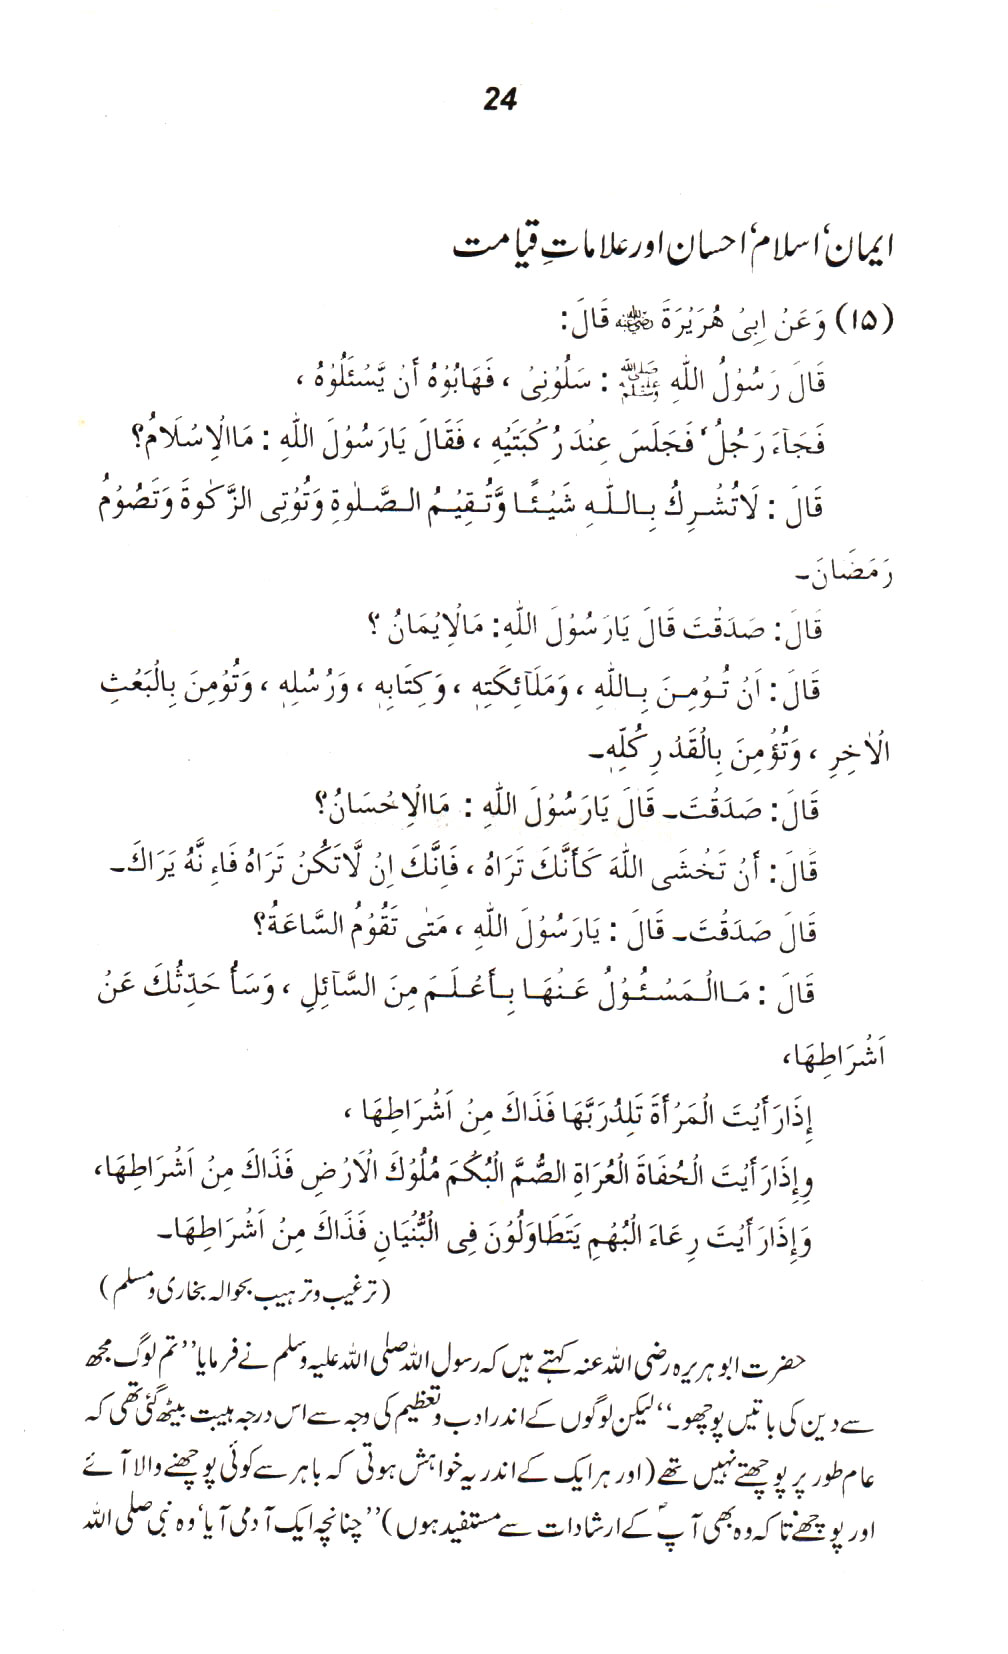 24
ایمان‘ اسلام‘ احسان اور علاماتِ قیامت
(۱۵) وَعَنْ اِبِیْ هُرَیْرَةَ رضی اللہ عنہ قَالَ:
قَالَ رَسُوْلُ اللّٰهِ ﷺ : سَلُوْنِیْ ، فَهَابُوْهُ أَنْ یَّسْئَلُوْهُ ،
فَجَآءَ رَجُلٌ‘ فَجَلَسَ عِنْدَ رُکْبَتَیْهِ ، فَقَالَ یَارَسُوْلَ اللّٰهِ : مَاالْاِسْلَامُ؟
قَالَ : لَاتُشْرِكُ بِاللّٰهِ شَیْئًا وَّتُقِیْمُ الصَّلٰوةِ وَتُوْتِی الزَّكٰوةَ وَتَصُوْمُ
رَمَضَانَ۔
قَالَ: صَدَقْتَ قَالَ یَارَسُوْلَ اللّٰهِ: مَالْاِیْمَانُ ؟
قَالَ: اَنْ تُوْمِنَ بِاللّٰهِ ، وَمَلَآئِكَتِهٖ ، وَكِتَابِهٖ ، وَرُسُلِهٖ ، وَتُوْمِنَ بِالْبَعْثِ
الْاٰخِرِ ، وَتُؤْمِنَ بِالْقَدْرِ كُلِّهٖ۔
قَالَ: صَدَقْتَ۔ قَالَ یَارَسُوْلَ اللّٰهِ : مَاالْاِحْسَانُ؟
قَالَ: أَنْ تَخْشَی اللّٰهَ كَأَنَّكَ تَرَاهُ ، فَاِنَّكَ اِنْ لَّاتَكُنْ تَرَاهُ فَاءِ نَّهٗ یَرَاكَ۔
قَالَ صَدَقْتَ۔ قَالَ : یَارَسُوْلَ اللّٰهِ ، مَتٰی تَقُوْمُ السَّاعَةُ؟
قَالَ : مَاالْمَسْئُوْلُ عَنْهَا بِأَعْلَمَ مِنَ السَّآئِلِ ، وَسَأُ حَدِّثُكَ عَنْ
اَشْرَاطِهَا،
إِذَارَأَیْتَ الْمَرْأَةَ تَلِدُرَبَّهَا فَذَاكَ مِنْ اَشْرَاطِهَا ،
وَإِذَارَأَیْتَ الْحُفَاةَ الْعُرَاةِ الصُّمَّ الْبُكْمَ مُلُوْكَ الْاَرْضِ فَذَاكَ مِنْ اَشْرَاطِهَا،
وَإِذَارَأَیْتَ رِعَاءَ الْبُهْمِ یَتَطَاوَلُوْنَ فِی الْبُنْیَانِ فَذَاكَ مِنْ اَشْرَاطِهَا۔
(ترغیب و ترہیب بحوالہ بخاری و مسلم)
حضرت ابو ہریرہ رضی اللہ عنہ کہتے ہیں کہ رسول اللہ صلی اللہ علیہ وسلم نے فرمایا ’’تم لوگ مجھ
سے دین کی باتیں پوچھو۔‘‘ لیکن لوگوں کے اندر ادب و تعظیم کی وجہ سے اس درجہ ہیبت بیٹھ گئی تھی کہ
عام طور پر پوچھتے نہیں تھے (اور ہر ایک کے اندر یہ خواہش ہوتی کہ باہر سے کوئی پوچھنے والا آئے
اور پوچھے تاکہ وہ بھی آپؐ کے ارشادات سے مستفید ہوں) ’’چنانچہ ایک آدمی آیا‘ وہ نبی صلی اللہ